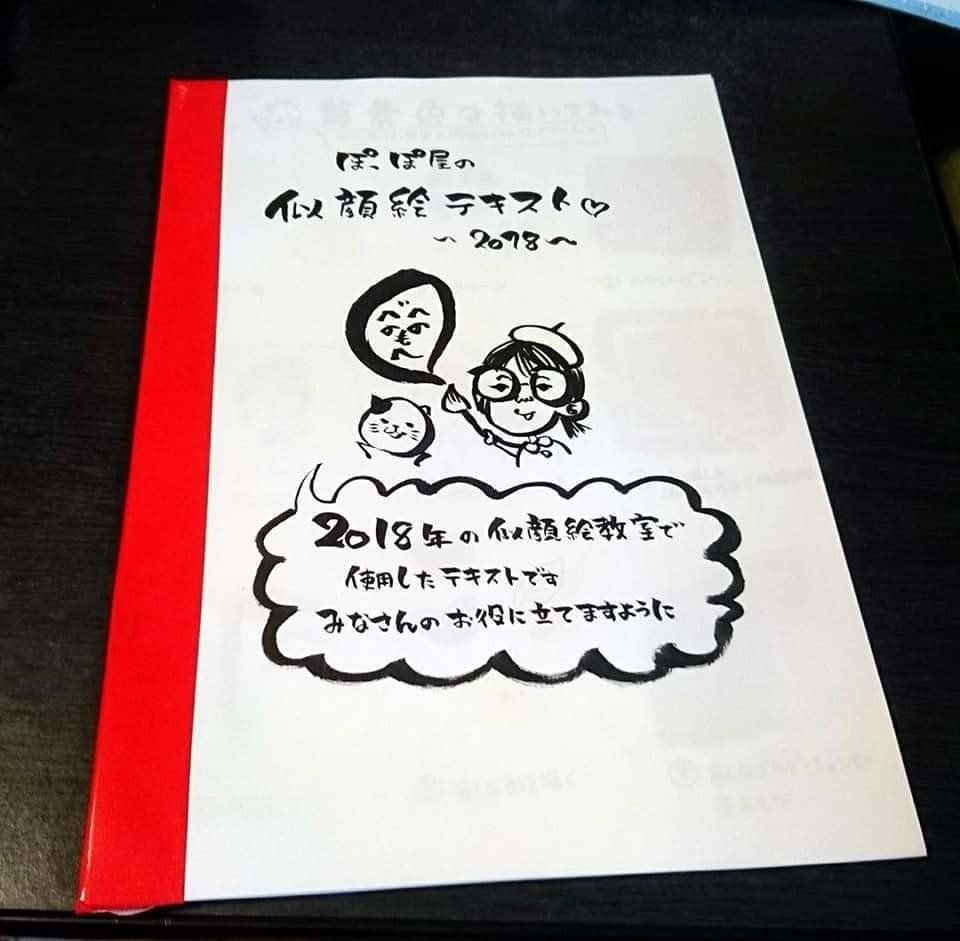 ぽっぽ屋の
似顔絵テキスト♡
〜2018〜
2018年の似顔絵教室で
使用したテキストです
みなさんのお役に立てますように